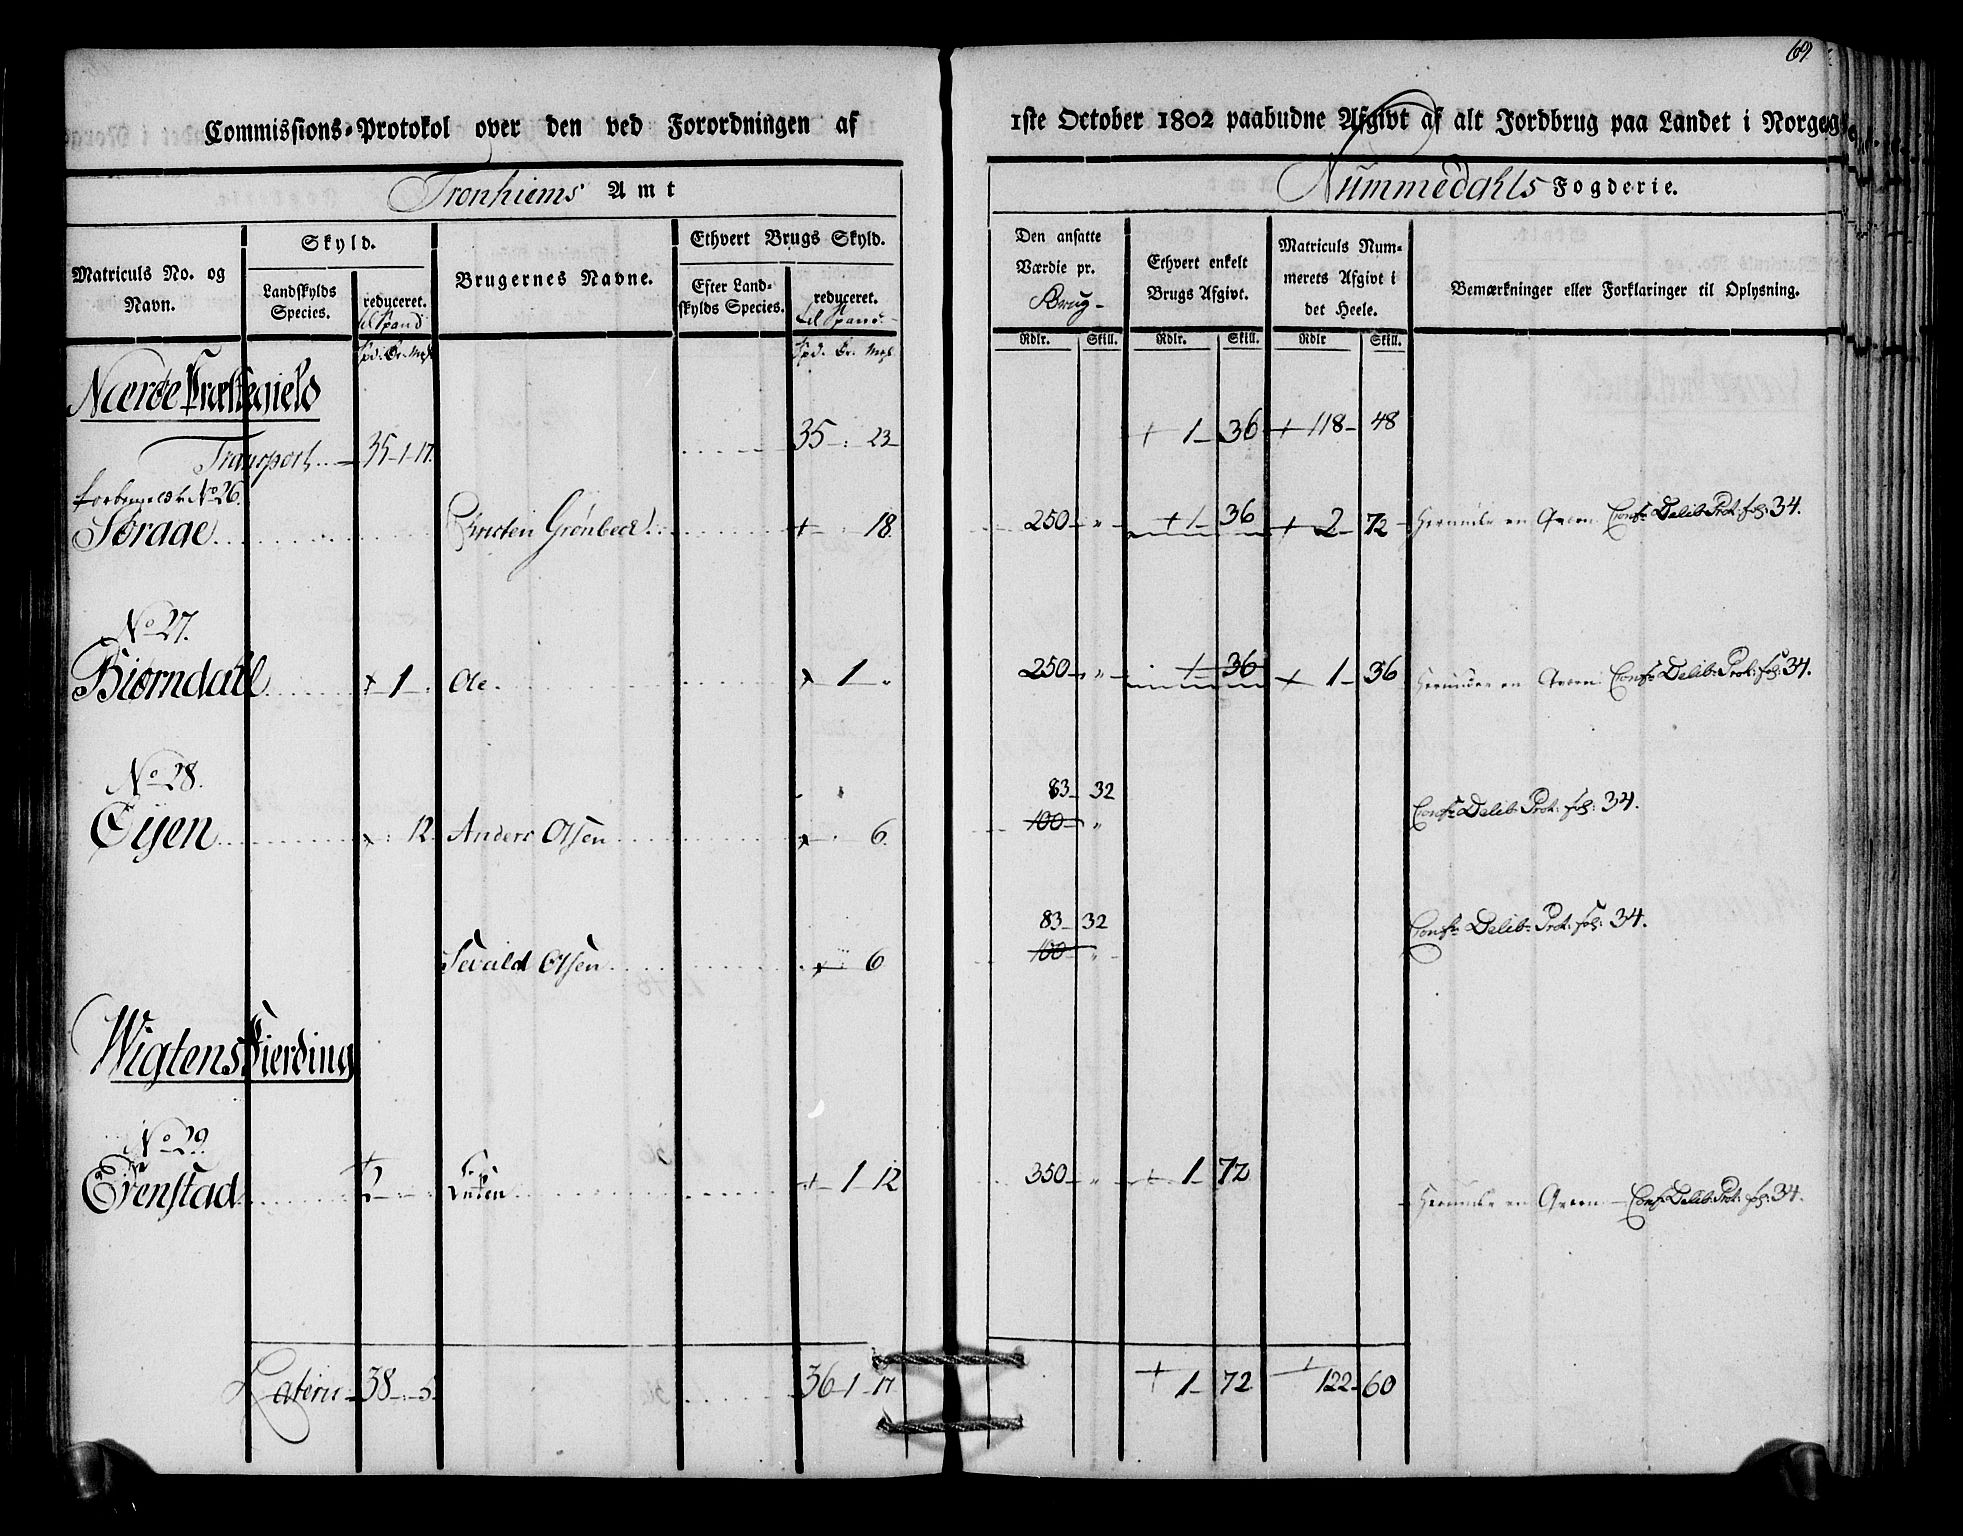 69
Commissions-Protokol over den ved Forordningen af 1ste October 1802 paabudne Afgivt af alt Jordbrug paa Landet i Norge
Tronhiems Amt
Nummedahls Fogderie.
Matriculs No. og Navn.
Skyld.
Landskylds Species.
reduceret. til Spand
Brugernes Navne.
Ethvert Brugs Skyld.
Efter Landskylds Species.
reduceret. til Spand
Den ansatte Værdie pr. Brug
Ethvert enkelt Brugs Afgivt.
Matriculs Nummerets Afgivt i det Heele.
Bemærkninger eller Forklaringer til Oplysning.
Spd. Ør. Msl. Spd. Ør. Msl. Rdlr. Skill. Rdlr. Skill. Rdlr Skill.
Nærøe Præstegield
Transport 35 - 1 - 17. 35 - : 23 + 1 - 36 + 118 - 48
forbemeldte No 26.
Sørage Christen Grønbeck + 18. 250 - " + 1 - 36 + 2 - 72 Herunder en Qværn Confr Delib: Prot: fol: 34.
No 27.
Biørndahl + 1 - Ole + 1 - " 250 - " 1 36 + 1 - 36 Herunder en Qværn Confr Delib: Prot: fol: 34.
No 28.
83 - 32
Øyen + : 12. Anders Olsen + : 6. 100 - " Confr Delib: Prot: fol: 34.
83 - 32
Sevald Olsen + 6 100 - " Confr Delib: Prot: fol: 34.
Wigtens Fierding
No 29.
Evenstad + 2 - : Enken + 1 12 350 - " + 1 72 Herunder en Qværn - Confr Delib: Prot: fol: 34.
Lateru 38 - : 5 36 - 1 - 17 + 1 - 72 + 122 - 60